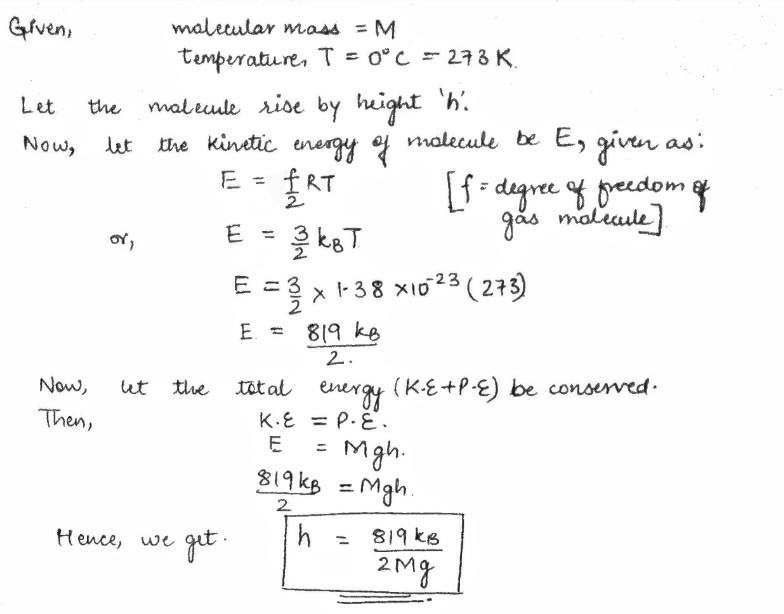 Given, molecular mass = M
temperature, T = 0°C = 273 K.
Let the molecule rise by height 'h'.
Now, let the kinetic energy of molecule be E, given as:
E = f/2 RT [f = degree of freedom of
gas molecule]
or, E = 3/2 kBT
E = 3/2 × 1.38 × 10^-23 (273)
E = 819 kB/2.
Now, let the total energy (K.E+P.E) be conserved.
Then, K.E = P.E.
E = Mgh.
819 kB/2 = Mgh.
Hence, we get. h = 819 kB/2Mg